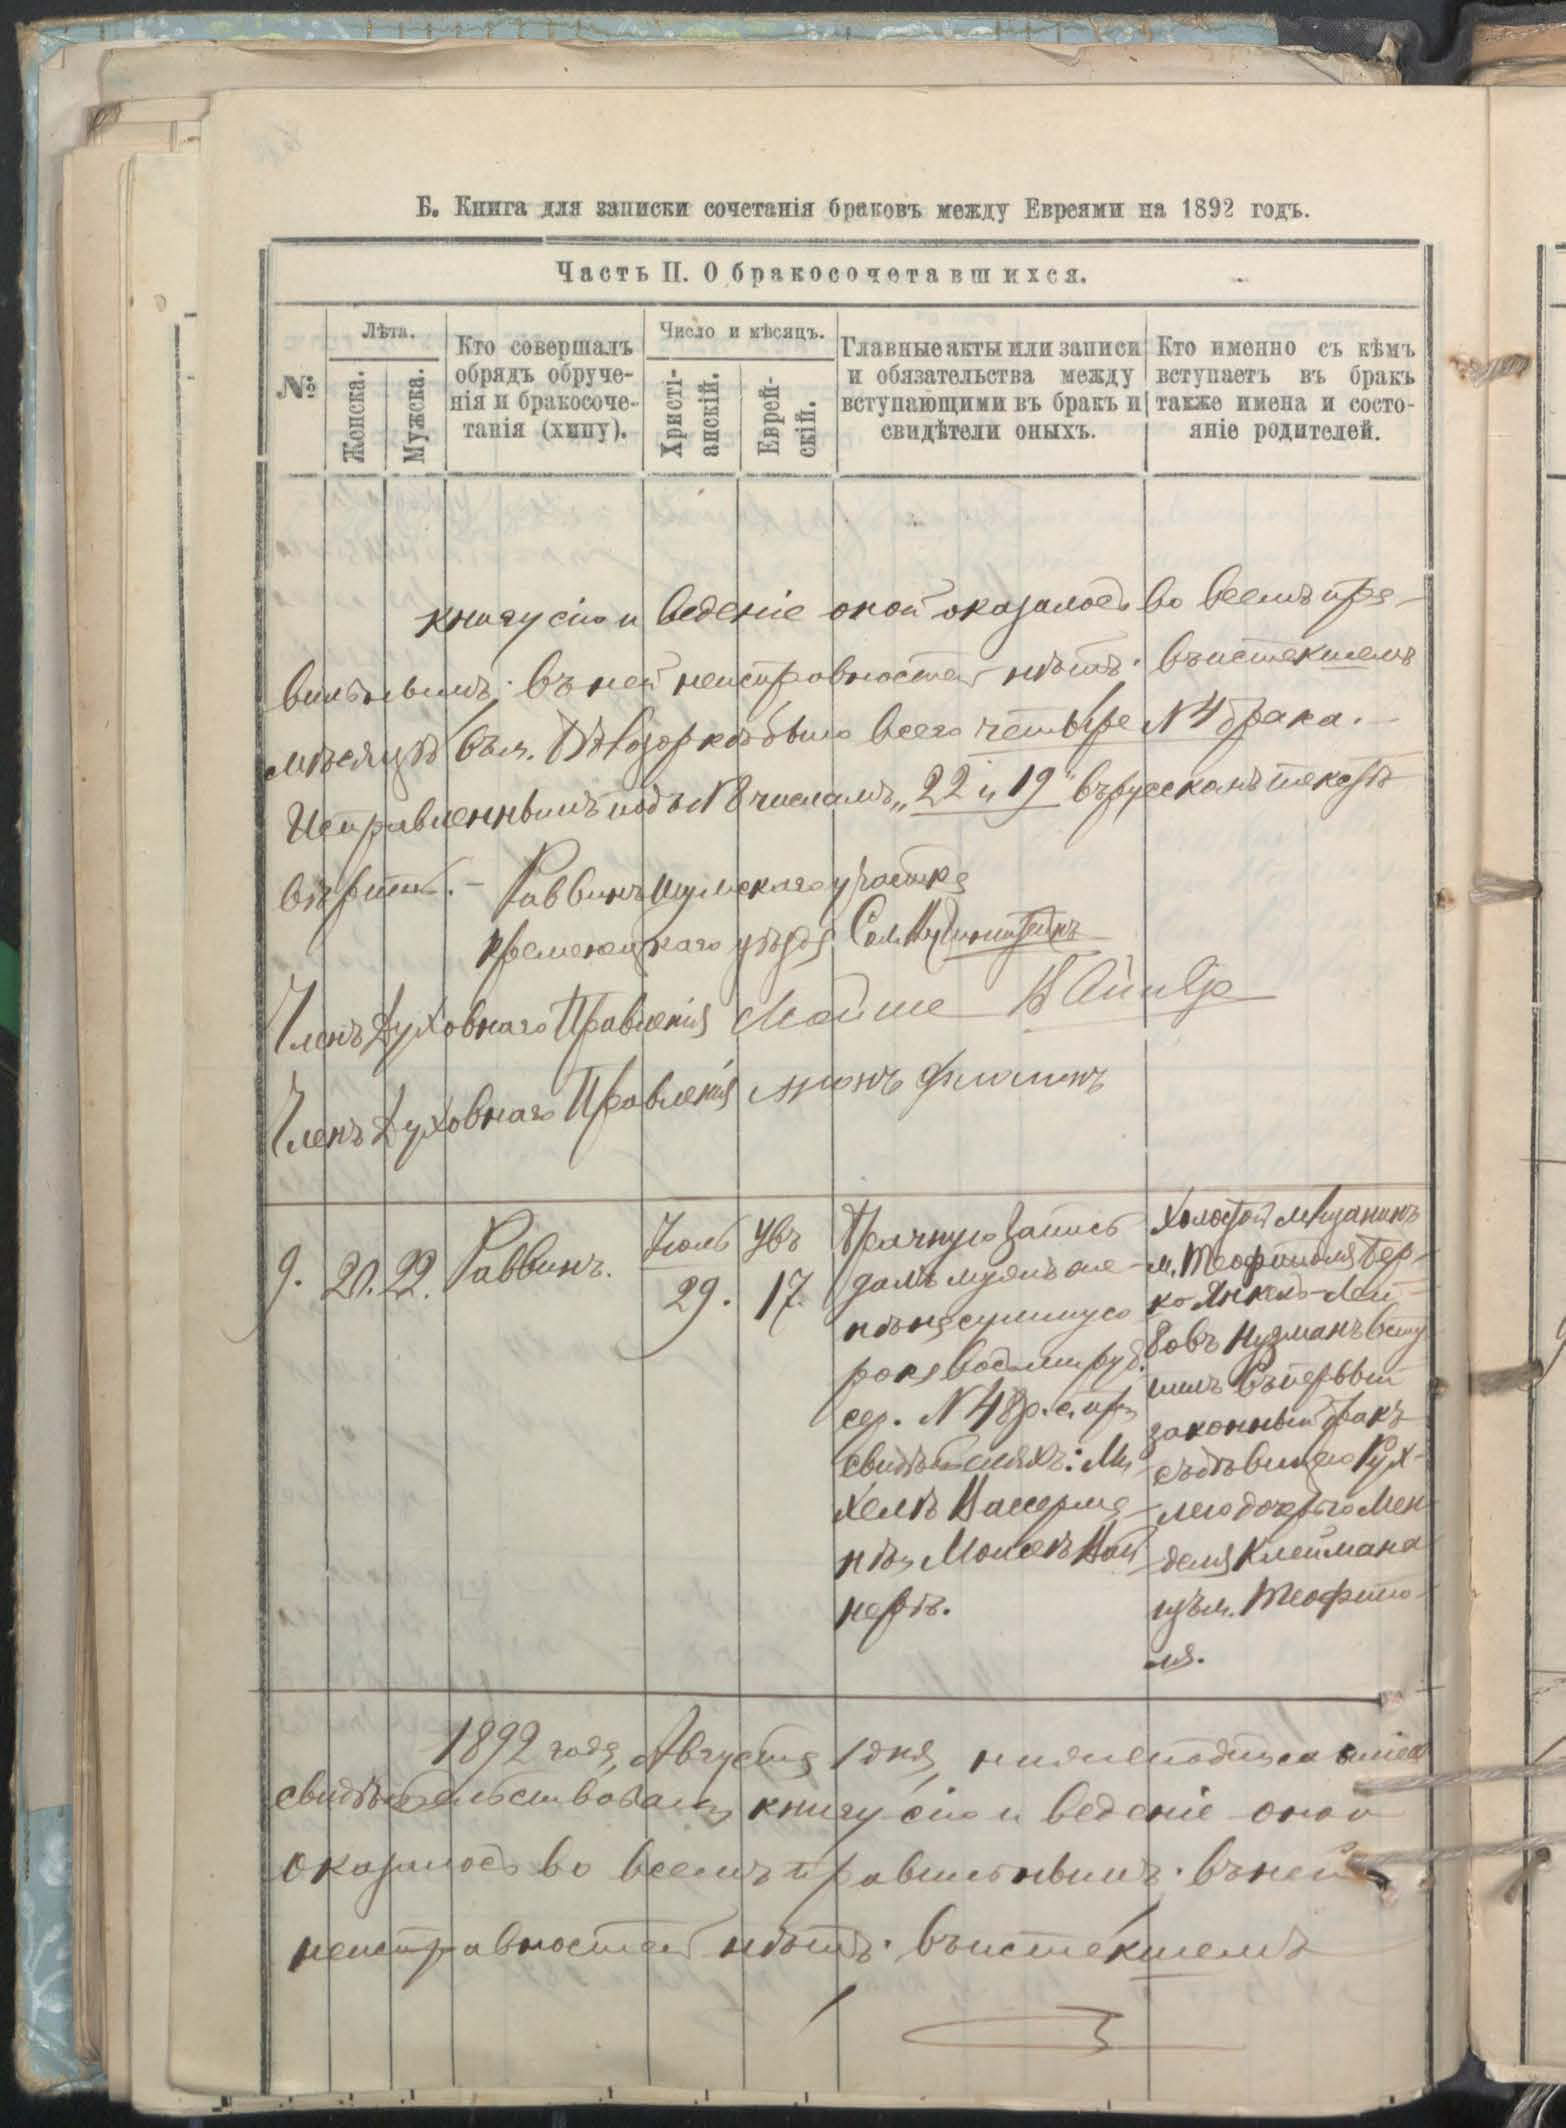 Б. Книга для записки сочетанія браковъ между Евреями на 1892 годъ.
Часть II. О бракосочетавшихся.
№
Лѣта.
Женска.
Мужска.
Кто совершалъ
обрядъ обруче-
нія и бракосоче-
танія (хипу).
Число и мѣсяцъ.
Христі-
анскій.
Еврей-
скій.
Главные акты или записи
и обязательства между
вступающими въ бракъ и
свидѣтели оныхъ.
Кто именно съ кѣмъ
вступаетъ въ бракъ
также имена и состо-
яніе родителей.
книгу сію и веденіе оной оказалось во всемъ пра-
вильнымъ; въ ней неисправностей нѣтъ. въ истекшемъ
мѣсяцѣ въ м. было всего четыре № 4 брака. –
Исправленнымъ подъ № 8 числамъ „22 и 19“ въ русскомъ текстѣ
вѣрить. – Раввинъ Шумскаго участка
Кременецкаго уѣзда
Членъ Духовнаго Правленія Мойше
Членъ Духовнаго Правленія
9.
20.
22.
Раввинъ.
Іюль
29.
Увъ
17.
запись
далъ мужъ же-
нѣ на сумму со
рокъ восемь руб.
сер. № 48 р. с. при
свидѣтеляхъ: Ми
хелѣ Вассерма-
нѣ и Мошкѣ Вай
нерѣ.
Холостой мѣщанинъ
м. Теофиполя Бер-
ко Янкель-Лей-
бовъ Нузманъ всту
пилъ въ первый
законный бракъ
съ дѣвицею Рух-
лею дочерью Мен-
деля Клеймана
изъ м. Теофипо-
ля.
1892 года, Августа 1 дня, нижеподписавшіеся
свидѣтельствовали книгу сію и веденіе оной
оказалось во всемъ правильнымъ. въ ней
неисправностей нѣтъ. въ истекшемъ